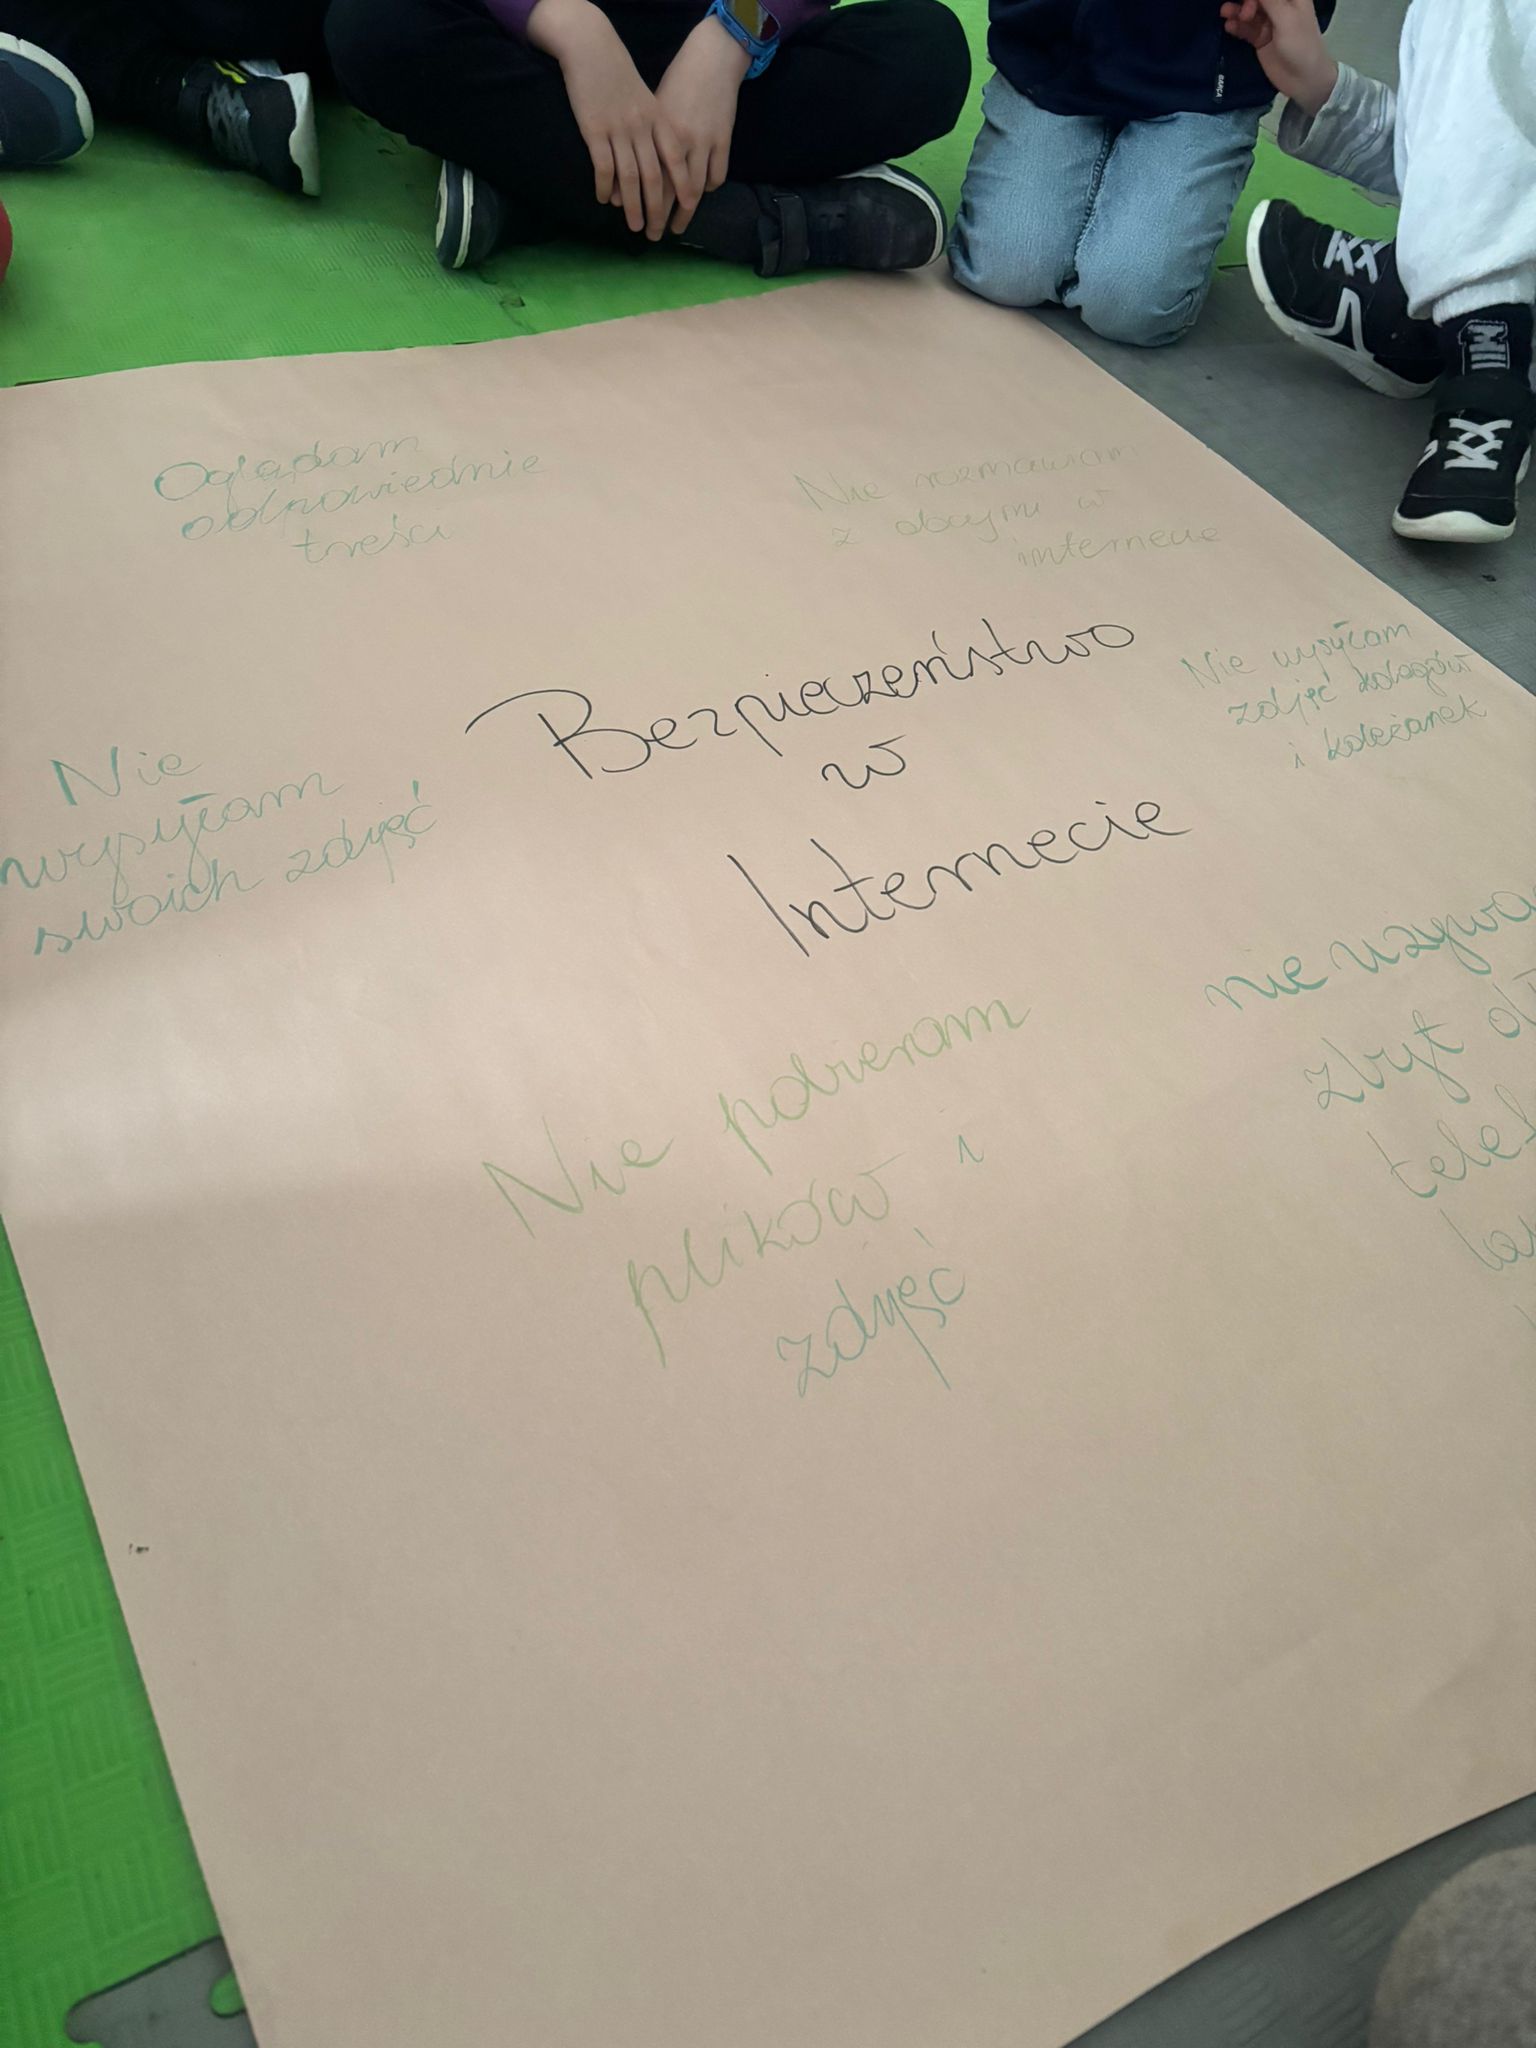 Oglądam
odpowiednie
treści
Nie rozmawiam
z obcymi w
internecie
Bezpieczeństwo
w
Internecie
Nie wysyłam
zdjęć kolegów
i koleżanek
Nie
wysyłam
swoich zdjęć
nie
zbyt
Nie pobieram
plików i
zdjęć